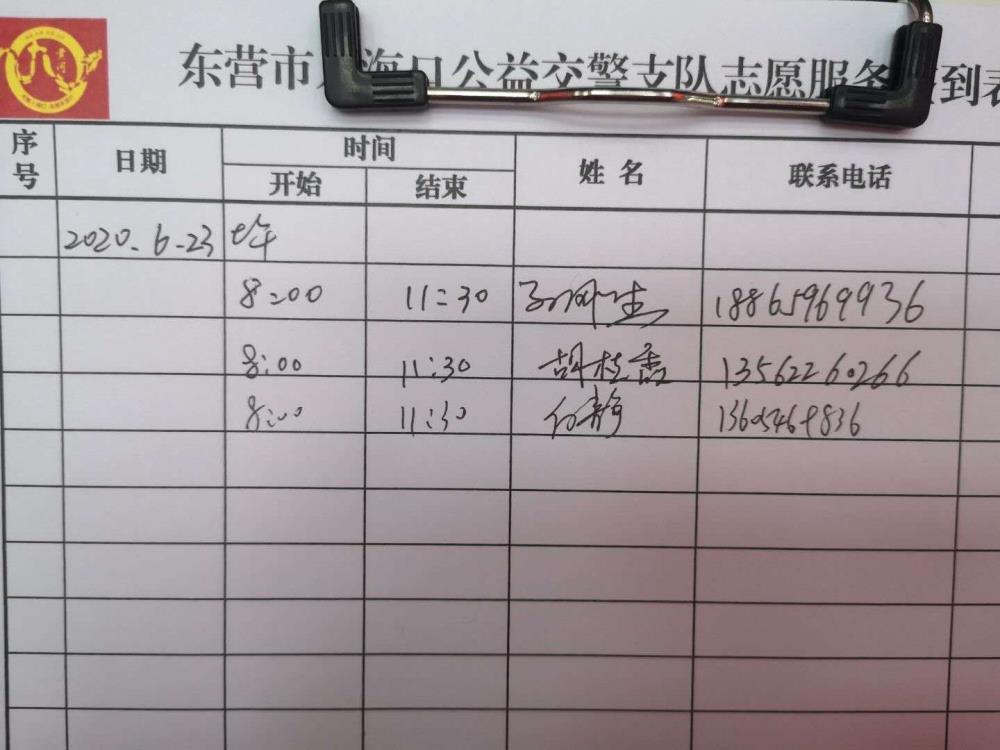 东营市 海口公益交警支队志愿服务 到表
序号 日期 时间 姓名 联系电话
开始 结束
2020.6.23 上午
8:00 11:30 18865969936
8:00 11:30 胡桂香 13562260266
8:00 11:30 付静